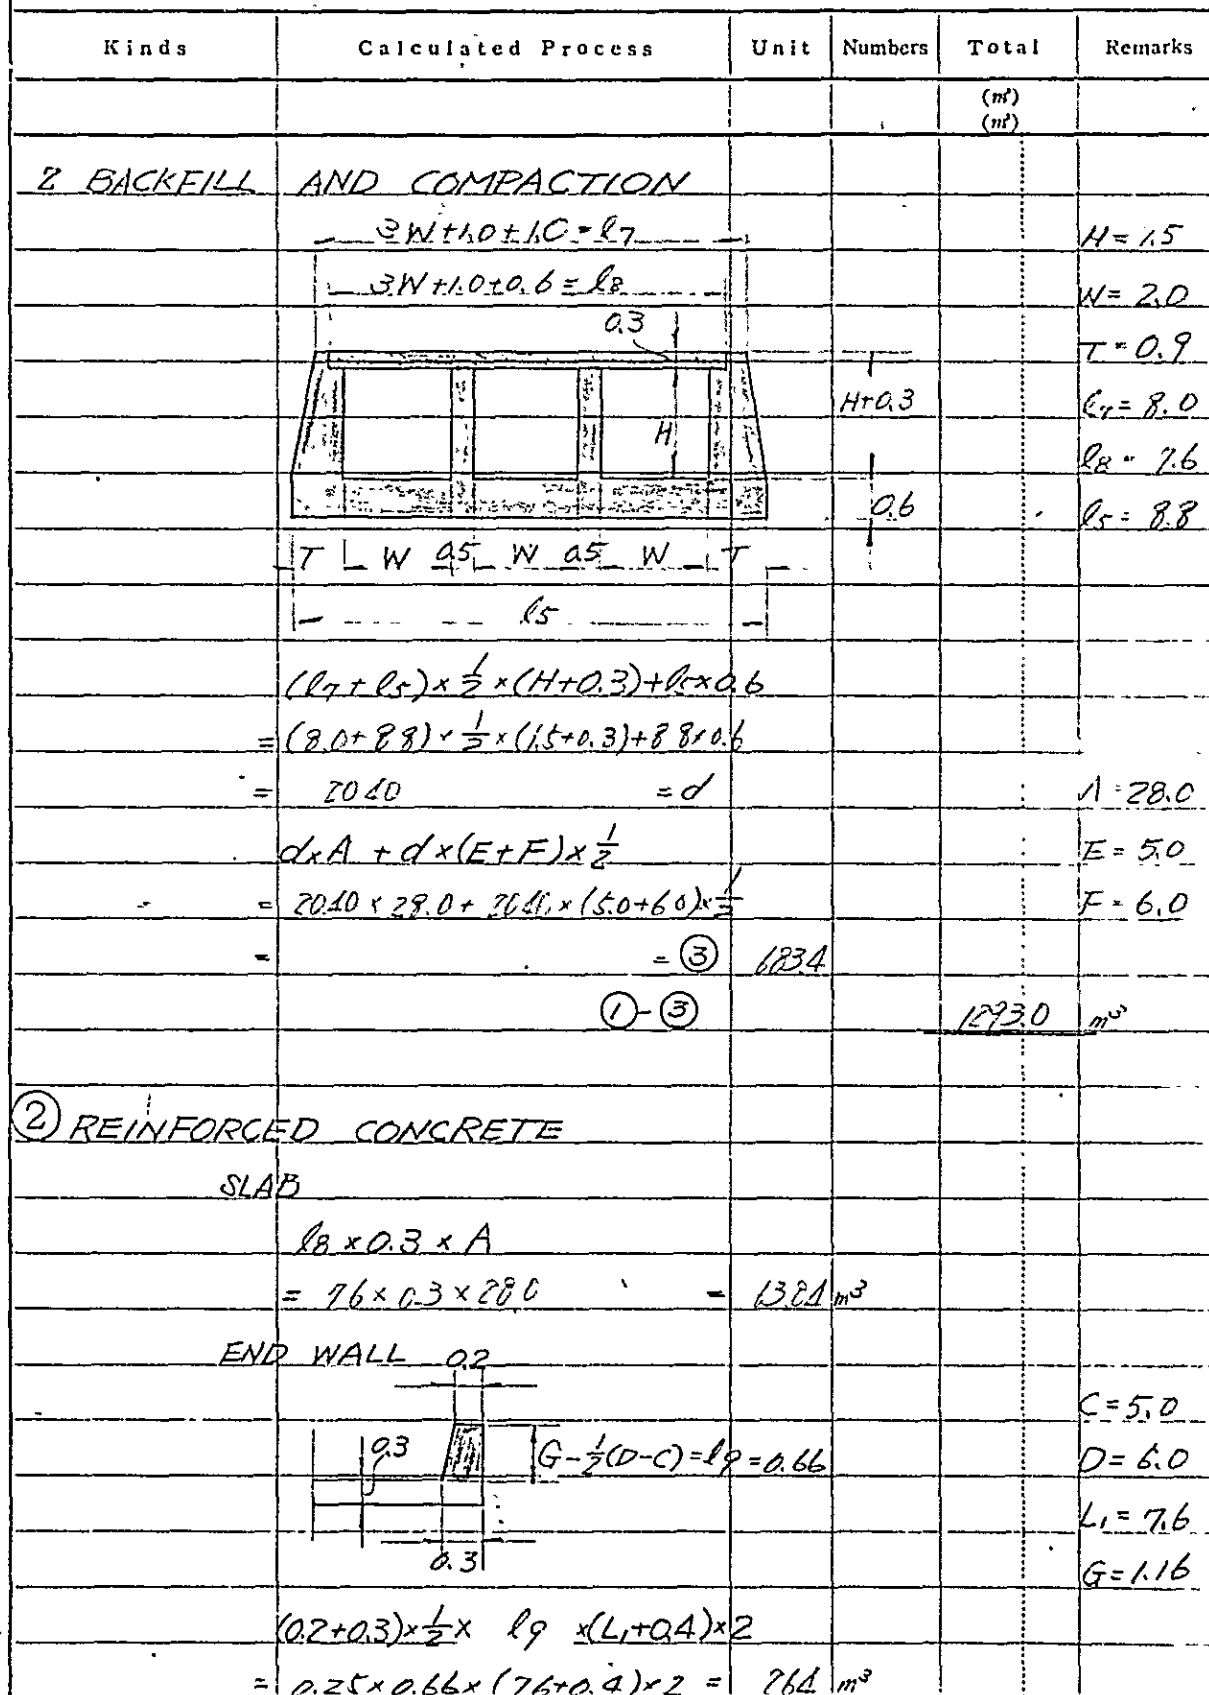 Kinds Calculated Process Unit Numbers Total Remarks
(m³)
(m³)
2 BACKFILL AND COMPACTION
3W+1.0+1.0=l7
H=1.5
3W+1.0+0.6=l8
W=2.0
0.3
T=0.9
H+0.3
l7=8.0
H
l8=7.6
0.6
l5=8.8
T W 0.5 W 0.5 W T
l5
(l7+l5)×1/2×(H+0.3)+l5×0.6
=(8.0+8.8)×1/2×(1.5+0.3)+8.8×0.6
= 20.40 =d
A=28.0
d×A+d×(E+F)×1/2
E=5.0
= 20.40×28.0+20.40×(5.0+6.0)×1/2
F=6.0
= =③ 683.4
①-③ 1293.0 m³
② REINFORCED CONCRETE
SLAB
l8×0.3×A
= 7.6×0.3×28.0 = 63.84 m³
END WALL 0.2
C=5.0
0.3 G-1/2(D-C)=l9=0.66
D=6.0
L1=7.6
0.3
G=1.16
(0.2+0.3)×1/2× l9 ×(L1+0.4)×2
= 0.25×0.66×(7.6+0.4)×2 = 2.64 m³